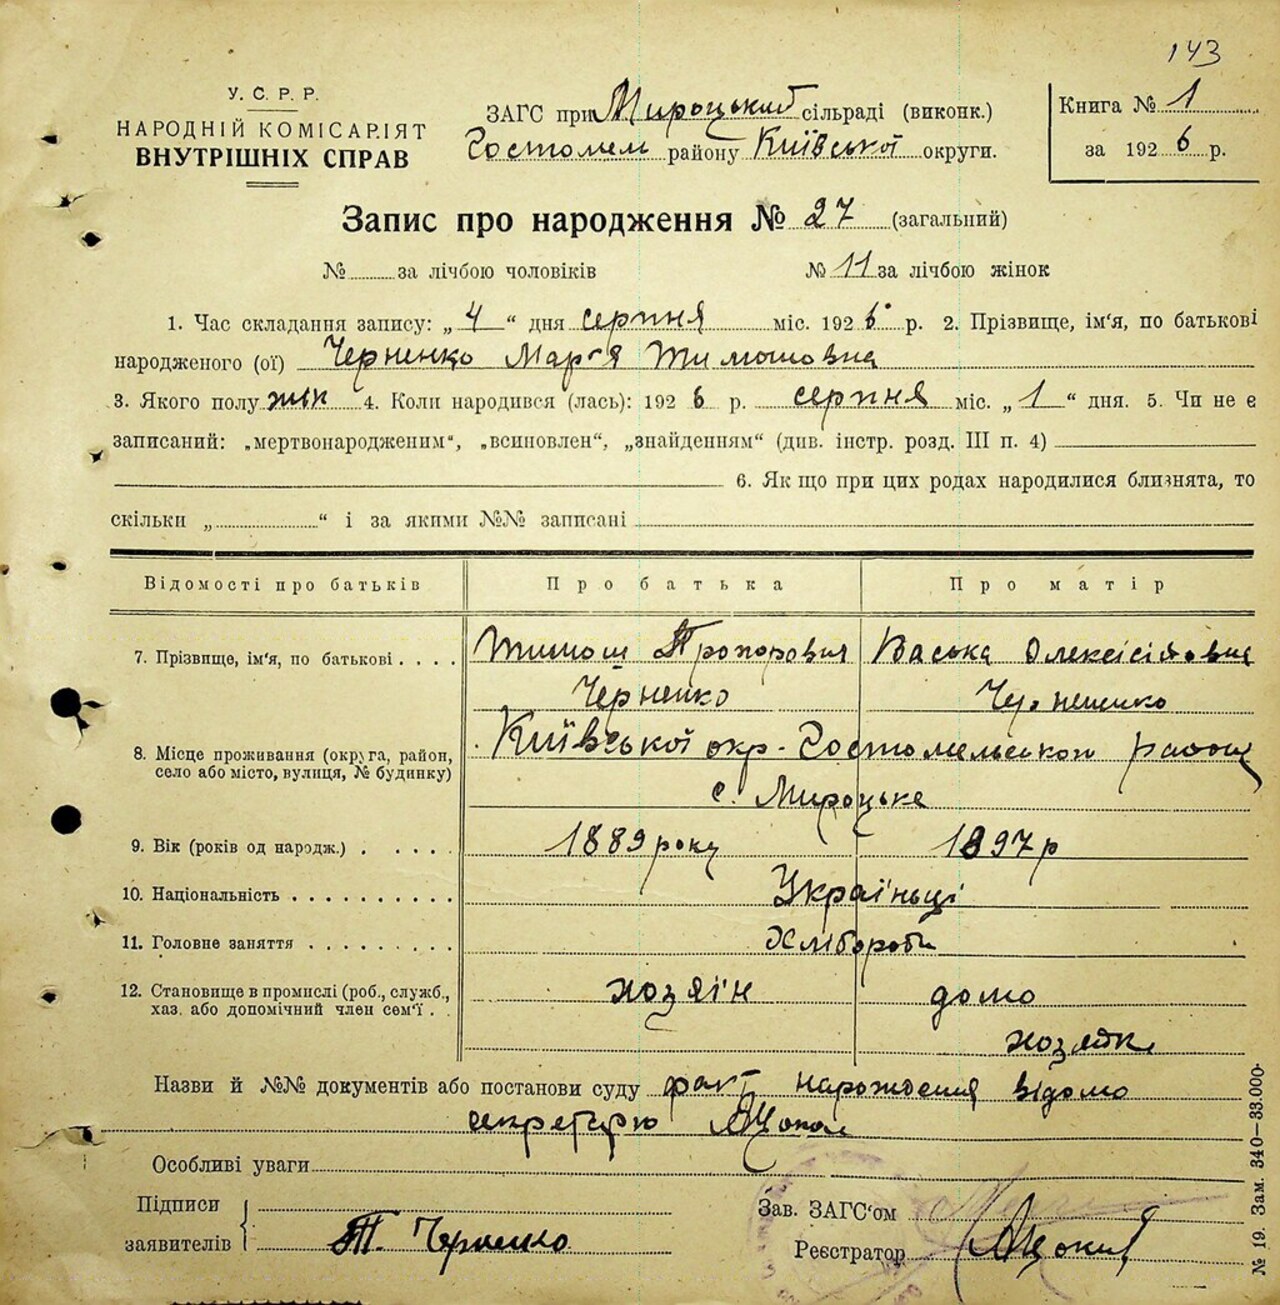 143
У. С. Р. Р.
НАРОДНІЙ КОМІСАРІЯТ
ВНУТРІШНІХ СПРАВ
ЗАГС при Мироцький сільраді (виконк.)
Гостомелм району Київської округи.
Книга № 1
за 1926 р.
Запис про народження № 27 (загальний)
№ за лічбою чоловіків № 11 за лічбою жінок
1. Час складання запису: „ 4 “ дня серпня міс. 1926 р. 2. Прізвище, ім‘я, по батькові
народженого (ої) Черненко Мар‘я Тимошовна
3. Якого полу жін 4. Коли народився (лась): 1926 р. серпня міс. „ 1 “ дня. 5. Чи не є
записаний: „мертвонародженим“, „всиновлен“, „знайденням“ (див. інстр. розд. III п. 4)
6. Як що при цих родах народилися близнята, то
скільки „ “ і за якими №№ записані
Відомості про батьків Про батька Про матір
7. Прізвище, ім‘я, по батькові . . . . Тимош Прохорович Васька
Черненко
8. Місце проживання (округа, район, село або місто, вулиця, № будинку) Київської окр. Гостомельської району
с. Мироцьке
9. Вік (років од народж.) . . . . . 1889 року 1897 р
10. Національність . . . . . . . . . . Українці
11. Головне заняття . . . . . . . . . Хлібороби
12. Становище в промислі (роб., служб., хаз. або допомічний член сем‘ї . . хозяїн домо
хозяйка
Назви й №№ документів або постанови суду факт нарождения відомо
секретарю
Особливі уваги
Підписи
заявителів Т. Черненко
Зав. ЗАГС‘ом
Реєстратор
№ 19. Зам. 340—33.000.